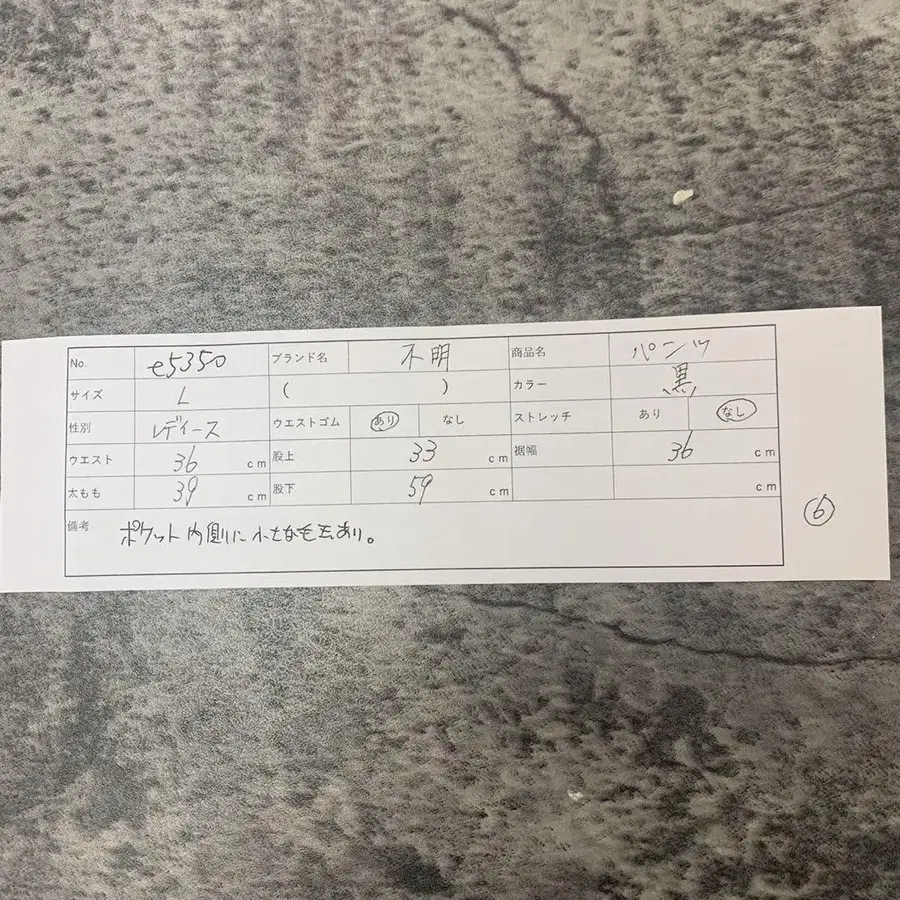 No. e5350 ブランド名 不明 商品名 パンツ
サイズ L ( ) カラー 黒
性別 レディース ウエストゴム あり なし ストレッチ あり なし
ウエスト 36 cm 股上 33 cm 裾幅 36 cm
太もも 39 cm 股下 59 cm cm
備考 ポケット内側に小さな毛玉あり。
6